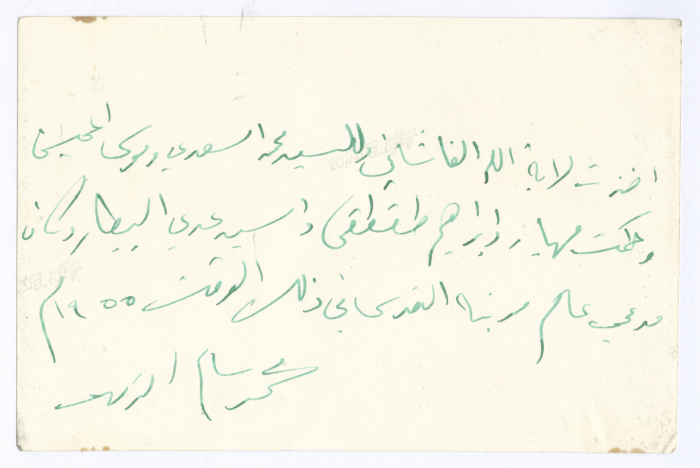 اخذت لاية الله القاشاني والسيد محمد السعدي وموسى الحسيني
وحكمت مهيار وابراهيم طقطقى والسيد عدي البيطار وكان
مدعي عام مدينة القدس في ذلك الوقت ١٩٥٥م
محمد سالم